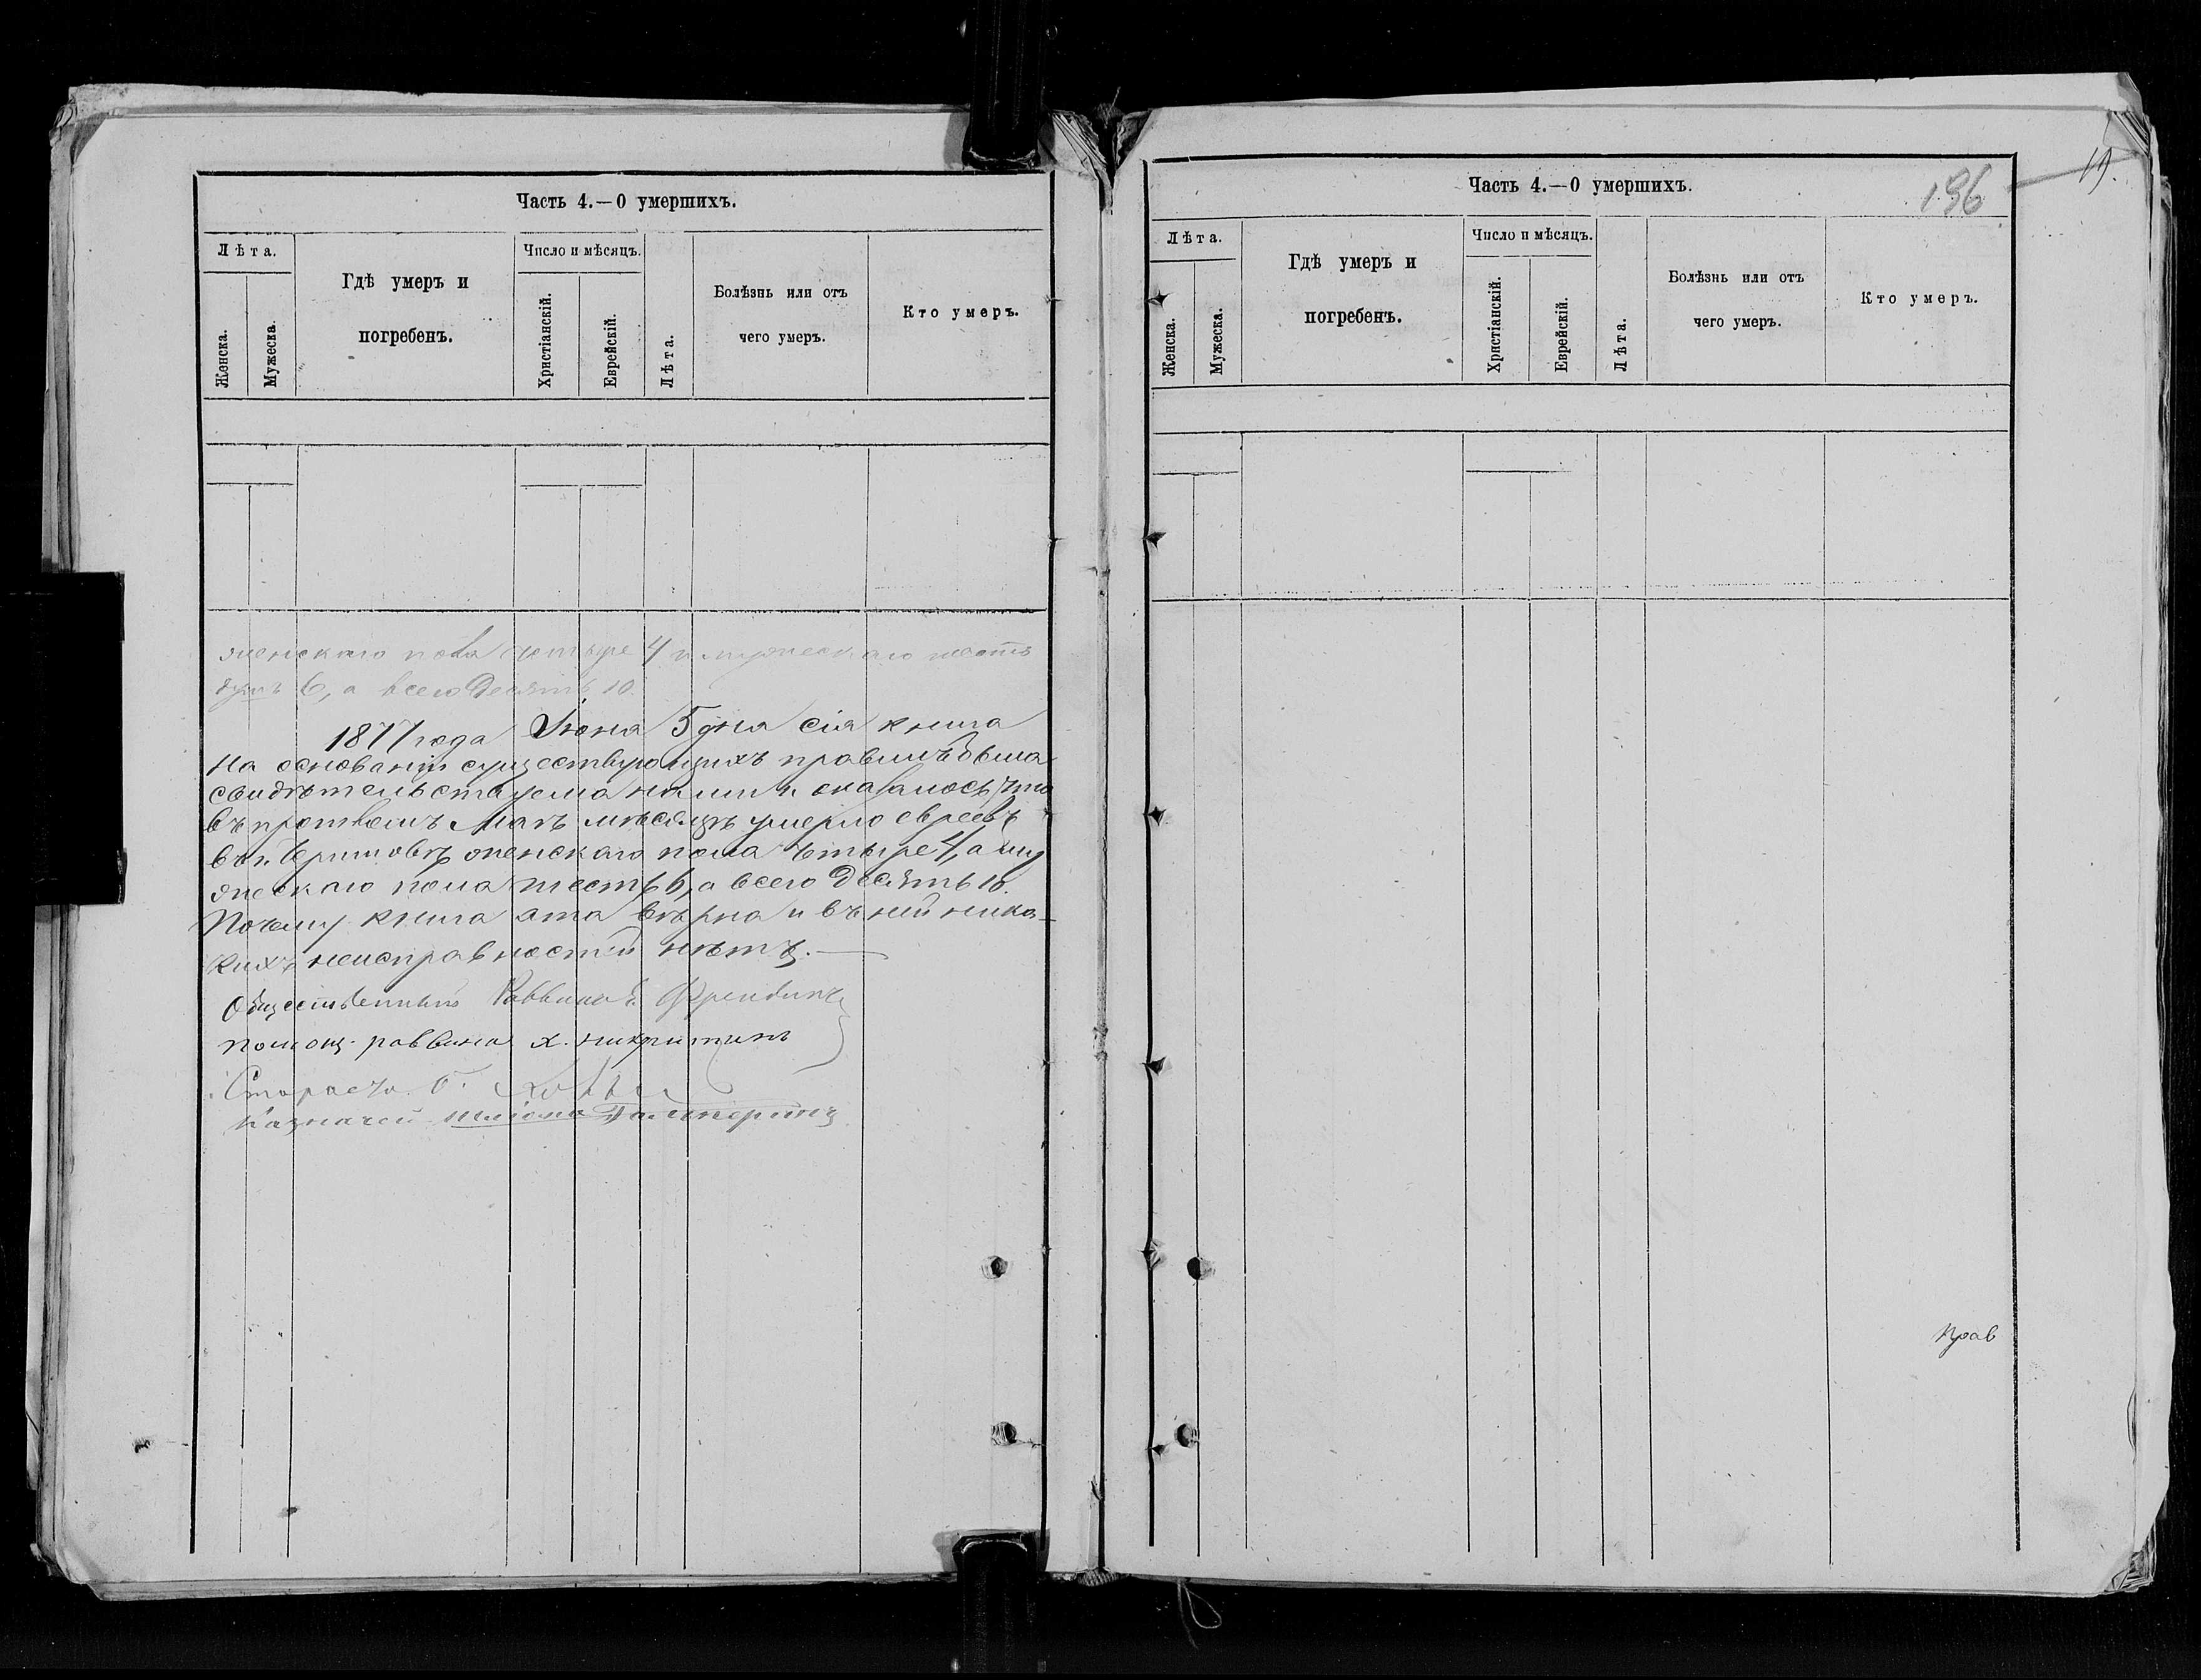 Часть 4.—О умершихъ.
Лѣта.
Женска.
Мужеска.
Гдѣ умеръ и
погребенъ.
Число и мѣсяцъ.
Христіанскій.
Еврейскій.
Лѣта.
Болѣзнь или отъ
чего умеръ.
Кто умеръ.
женскаго пола четыре 4 и мужескаго шесть
душъ 6, а всего десять 10.
1877 года Іюня 5 дня сія книга
на основаніи существующихъ правилъ была
свидѣтельствуема нами и оказалось, что
въ протекшемъ Маѣ мѣсяцѣ умерло евреевъ
въ г. женскаго пола четыре 4, а му
жескаго пола шесть 6, а всего десять 10.
Почему книга эта вѣрна и въ ней ника-
кихъ неисправностей нѣтъ.—
Общественный Раввинъ
Помощ. раввина Х.
Староста
Казначей Шлiома Гальперинъ
Часть 4.—О умершихъ.
196
19.
Лѣта.
Женска.
Мужеска.
Гдѣ умеръ и
погребенъ.
Число и мѣсяцъ.
Христіанскій.
Еврейскій.
Лѣта.
Болѣзнь или отъ
чего умеръ.
Кто умеръ.